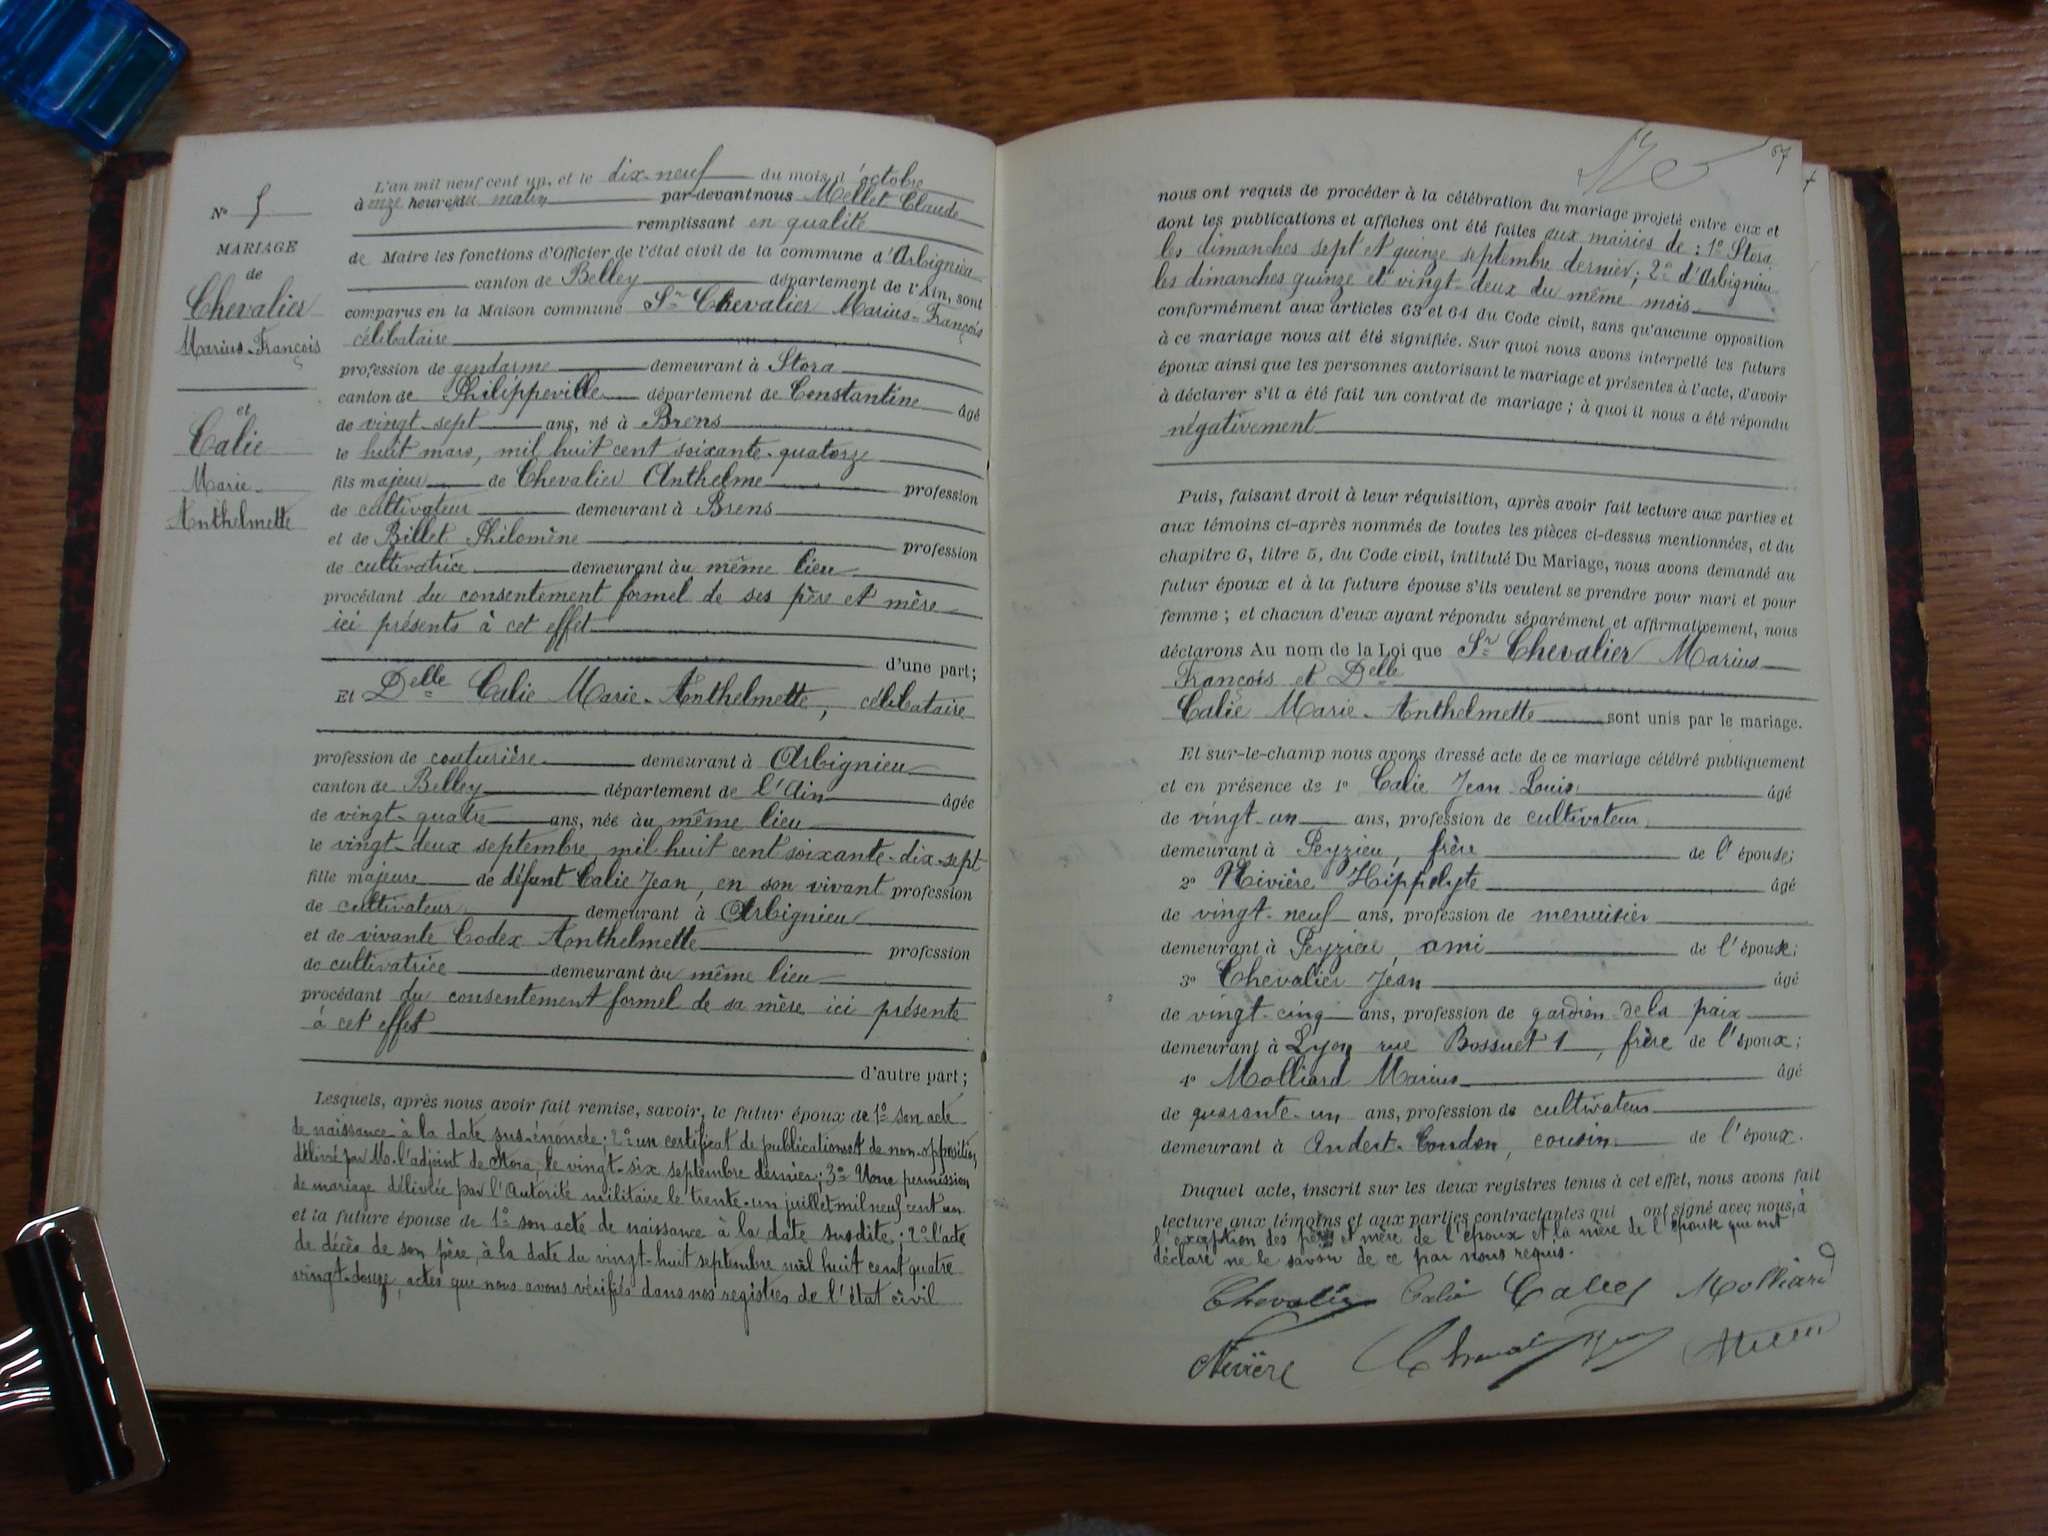 N° 5
MARIAGE
de
Chevalier
Marius-François
et
Calie
Marie-
Anthelmette
L'an mil neuf cent un, et le dix-neuf du mois d'octobre
à onze heures du matin par-devant nous Mellet Claude
remplissant en qualité
de Maire les fonctions d'Officier de l'état civil de la commune d'Arbignieu
canton de Belley département de l'Ain, sont
comparus en la Maison commune Sr Chevalier Marius-François
célibataire
profession de gendarme demeurant à Stora
canton de Philippeville département de Constantine âgé
de vingt-sept ans, né à Brens
le huit mars, mil huit cent soixante-quatorze
fils majeur de Chevalier Anthelme profession
de cultivateur demeurant à Brens
et de Billet Philomène profession
de cultivatrice demeurant au même lieu
procédant du consentement formel de ses père et mère
ici présents à cet effet
d'une part;
Et Delle Calie Marie-Anthelmette, célibataire
profession de couturière demeurant à Arbignieu
canton de Belley département de l'Ain âgée
de vingt-quatre ans, née au même lieu
le vingt-deux septembre mil huit cent soixante-dix-sept
fille majeure de défunt Calie Jean, en son vivant profession
de cultivateur demeurant à Arbignieu
et de vivante Codex Anthelmette profession
de cultivatrice demeurant au même lieu
procédant du consentement formel de sa mère ici présente
à cet effet
d'autre part;
Lesquels, après nous avoir fait remise, savoir, le futur époux de 1° son acte
de naissance à la date sus-énoncée; 2° un certificat de publications et de non-opposition
délivré par M. l'adjoint de Stora, le vingt-six septembre dernier; 3° Une permission
de mariage délivrée par l'Autorité militaire le trente-un juillet mil neuf cent un
et la future épouse de 1° son acte de naissance à la date susdite; 2° l'acte
de décès de son père, à la date du vingt-huit septembre mil huit cent quatre
vingt-douze, actes que nous avons vérifiés dans nos registres de l'état civil
67
nous ont requis de procéder à la célébration du mariage projeté entre eux et
dont les publications et affiches ont été faites aux mairies de : 1° Stora
les dimanches sept et quinze septembre dernier; 2° d'Arbignieu
les dimanches quinze et vingt-deux du même mois
conformément aux articles 63 et 64 du Code civil, sans qu'aucune opposition
à ce mariage nous ait été signifiée. Sur quoi nous avons interpellé les futurs
époux ainsi que les personnes autorisant le mariage et présentes à l'acte, d'avoir
à déclarer s'il a été fait un contrat de mariage ; à quoi il nous a été répondu
négativement
Puis, faisant droit à leur réquisition, après avoir fait lecture aux parties et
aux témoins ci-après nommés de toutes les pièces ci-dessus mentionnées, et du
chapitre 6, titre 5, du Code civil, intitulé Du Mariage, nous avons demandé au
futur époux et à la future épouse s'ils veulent se prendre pour mari et pour
femme ; et chacun d'eux ayant répondu séparément et affirmativement, nous
déclarons Au nom de la Loi que Sr Chevalier Marius
François et Delle
Calie Marie-Anthelmette sont unis par le mariage.
Et sur-le-champ nous avons dressé acte de ce mariage célébré publiquement
et en présence de 1° Calie Jean-Louis âgé
de vingt-un ans, profession de cultivateur
demeurant à Peyzieu, frère de l'épouse;
2° Nivière Hippolyte âgé
de vingt-neuf ans, profession de menuisier
demeurant à Peyzieu, ami de l'épouse;
3° Chevalier Jean âgé
de vingt-cinq ans, profession de gardien de la paix
demeurant à Lyon rue Bossuet 1, frère de l'époux;
4° Molliard Marius âgé
de quarante-un ans, profession de cultivateur
demeurant à Andert-Condon, cousin de l'époux.
Duquel acte, inscrit sur les deux registres tenus à cet effet, nous avons fait
lecture aux témoins et aux parties contractantes qui ont signé avec nous, à
l'exception des père et mère de l'époux et la mère de l'épouse qui ont
déclaré ne le savoir de ce par nous requis.
Chevalier Calie Calie J Molliard
Nivière Chevalier Jean Mellet